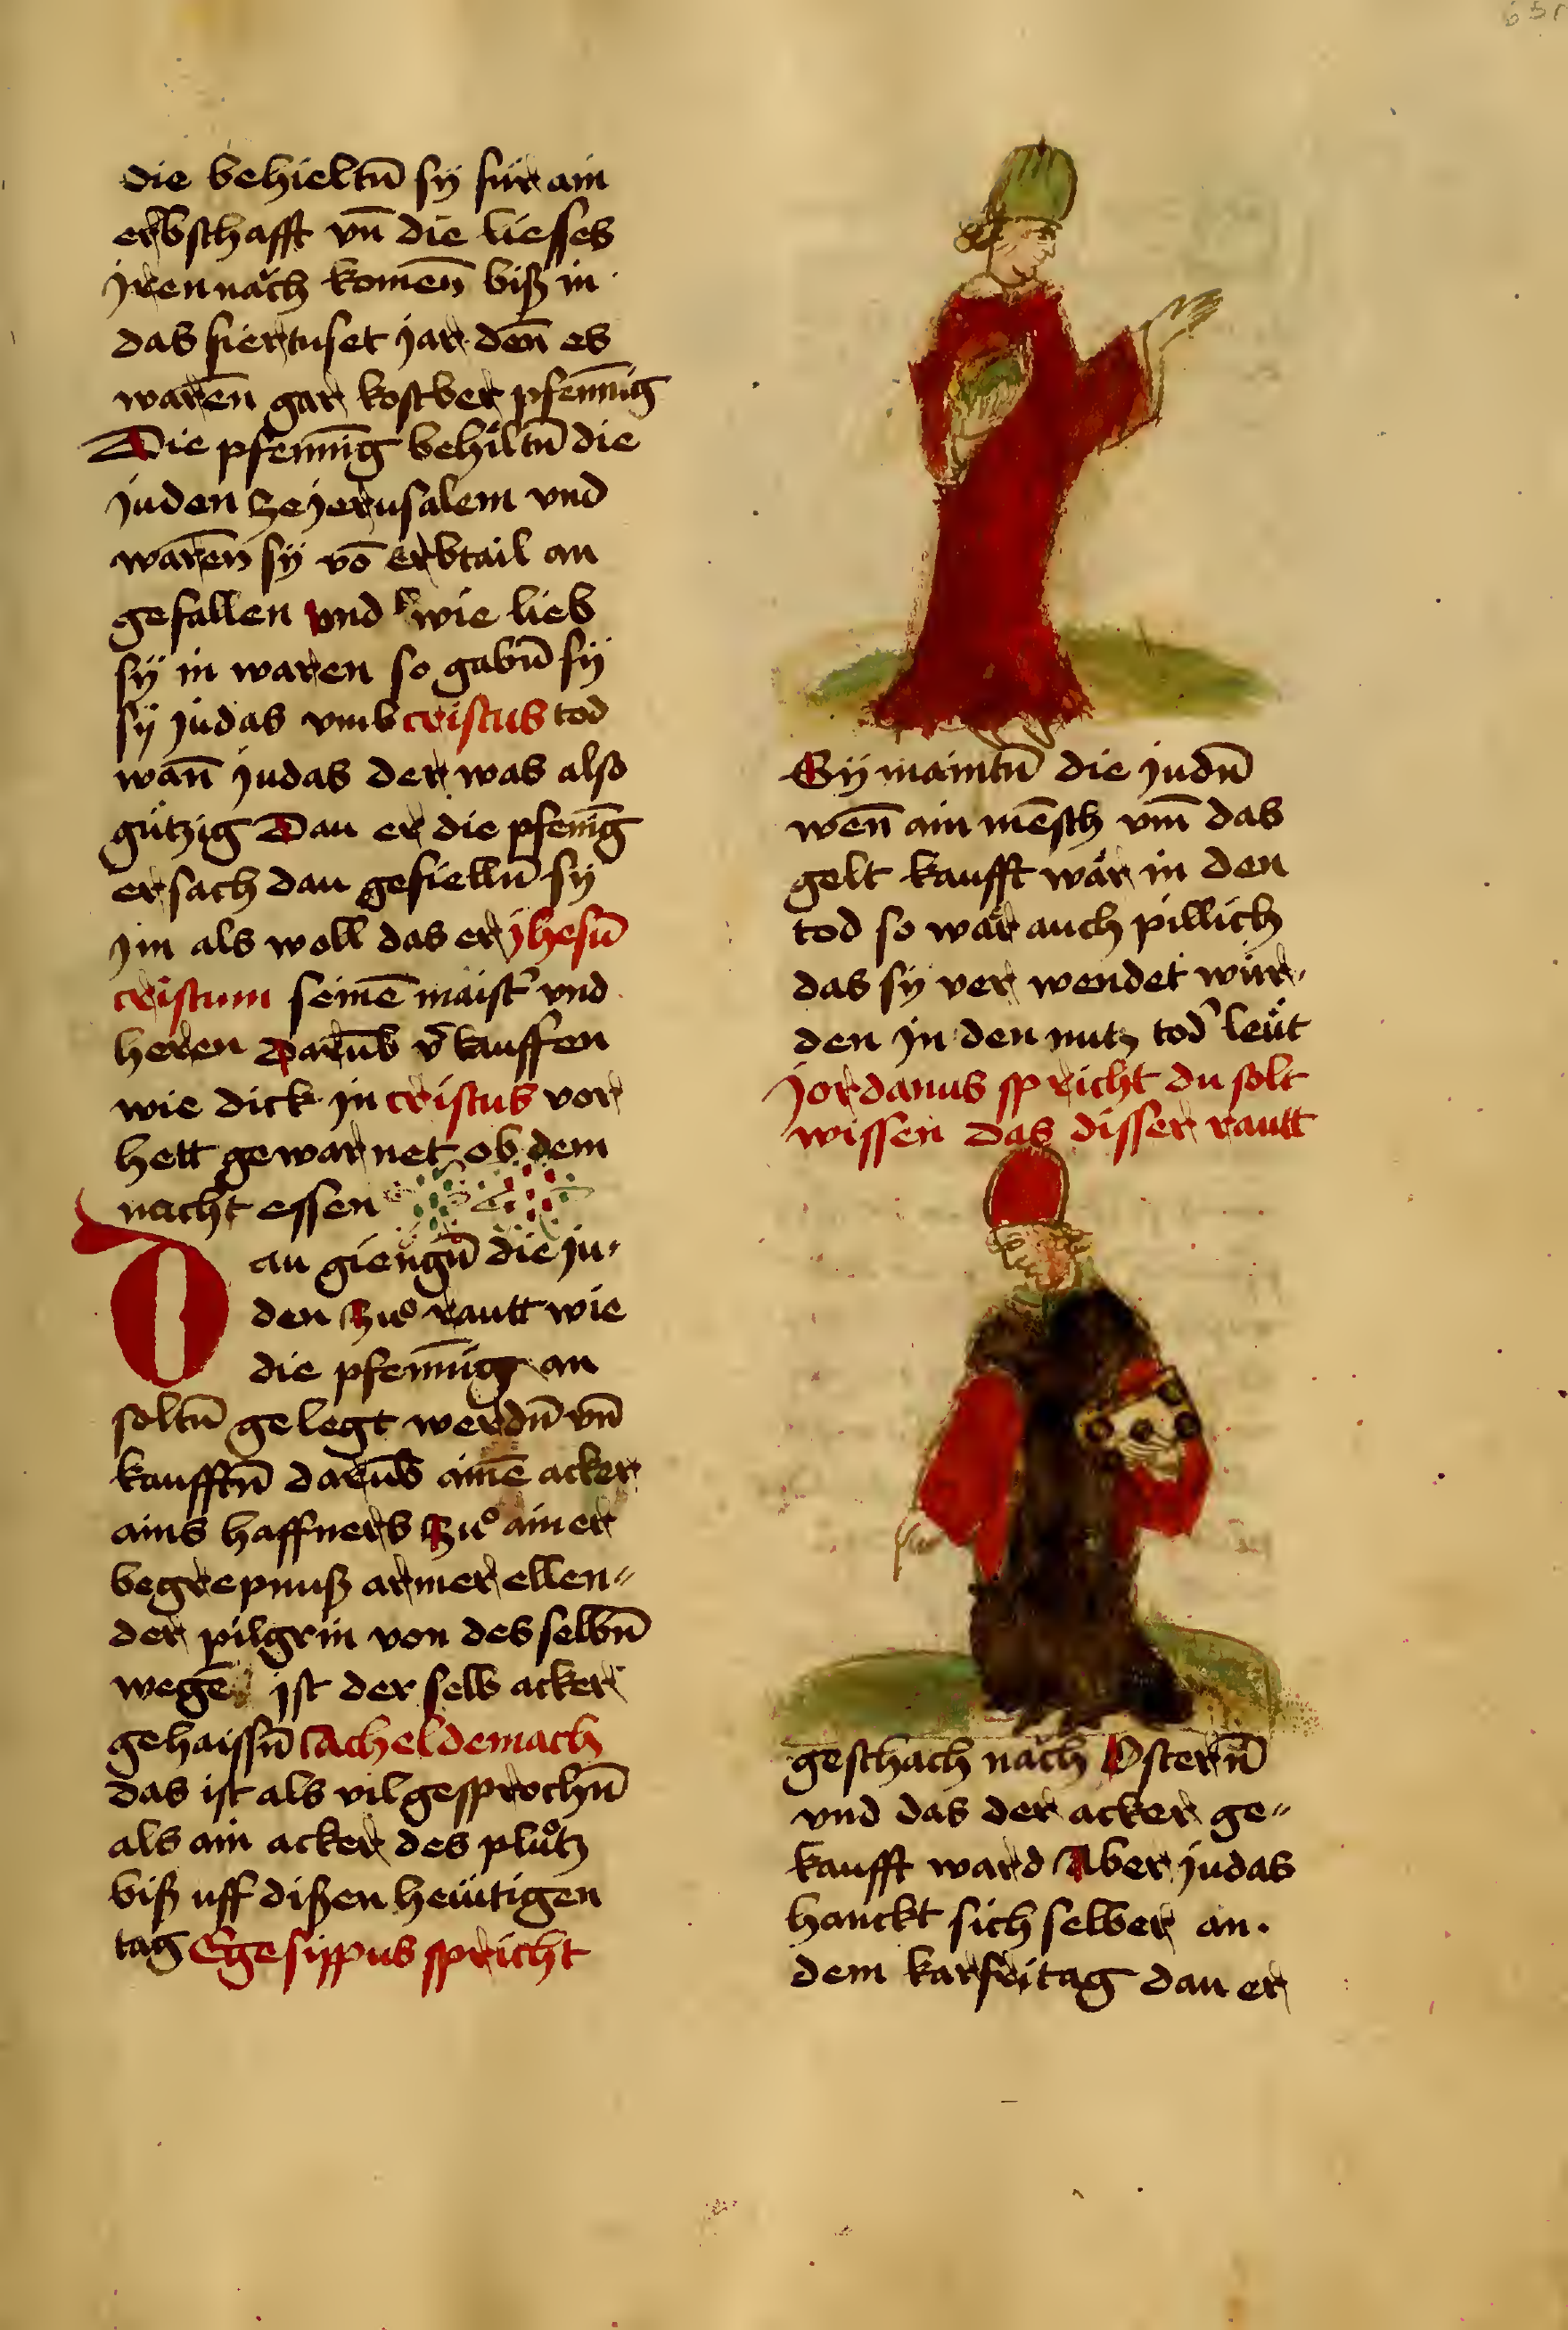 die behieltn̄ sÿ für ain
erbschafft vn̄ die liesses
jren nǎch komen̄ biß in
das fiertuset jar den̄ es
waren̄ gar kostber pfennīg
Die pfennīg behiltn̄ die
juden ze jerusalem vnd
waren̄ sÿ vō erbtail an
gefallen vnd wie lieb
sÿ in waren so gabn̄ sÿ
sÿ judas vmb cristus tod
wan̄ judas der was also
gützig Dau er die pfenīg
ersach dau gefielln̄ sÿ
jm als woll das er jhesū
cristum seinē maistˀ vnd
heren darūb v̄kauffen
wie dick jn cristus vor
hett gewarnet ob dem
nacht essen
Dau giengn̄ die ju-
den zuͦ rautt wie
die pfennīg an
soltn̄ gelegt werdn̄ vn̄
kaufftn̄ darūb ainē acker
ains haffners zuͦ ainer
begrepnuß armer ellen-
der pilgrin von des selbn̄
wegē ist der selb acker
gehaissn̄ Acheldemach
das ist als vil gesprochn̄
als ain acker des pluͦtz
biß uff dißen heütigen
tag Egesippus spricht
651
Sÿ maintn̄ die judn̄
wen̄ ain mēsch vm̄ das
gelt kaufft wär in den
tod so wär auch pillich
das sÿ ver wendet wür-
den jn den nutz todˀ leüt
jordanus spricht du solt
wissen das disser rautt
geschach nǎch Ostern̄
vnd das der acker ge-
kaufft ward Aber judas
hanckt sich selber an.
dem karfritag dau er